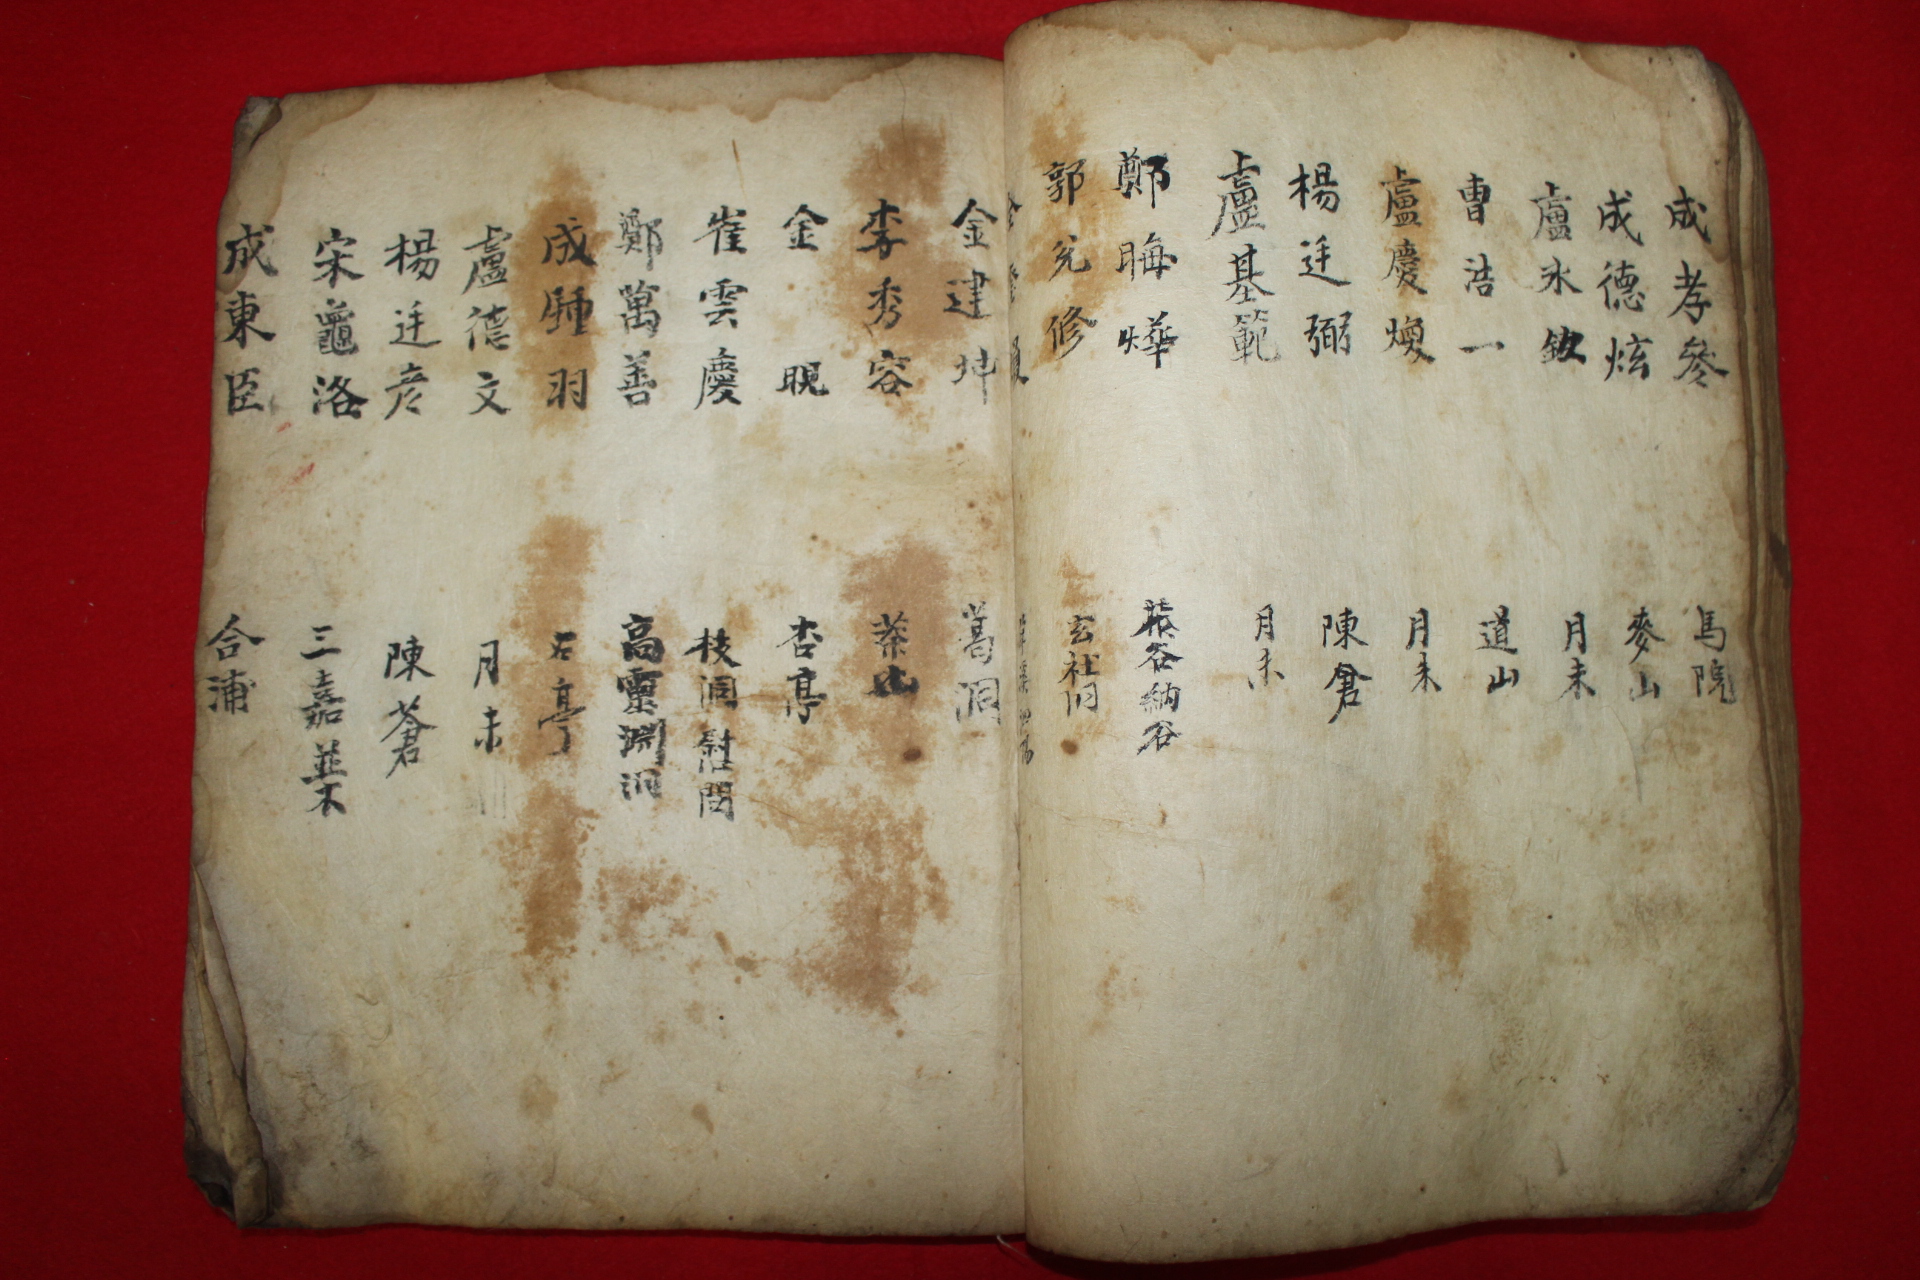 成孝參 馬院
成德炫 麥山
盧永欽 月未
曺浩一 道山
盧慶煥 月未
楊廷弼 陳倉
盧基範 月未
鄭晦燁 谷納谷
郭兌修 玄社洞
金建坤 葛洞
李秀容 茶山
金晛 杏亭
崔雲慶 枝洞慰問
鄭萬善 高靈淵洞
成鍾羽 石亭
盧德文 月未
楊廷彦 陳蒼
宋龜洛 三嘉並木
成東臣 合浦